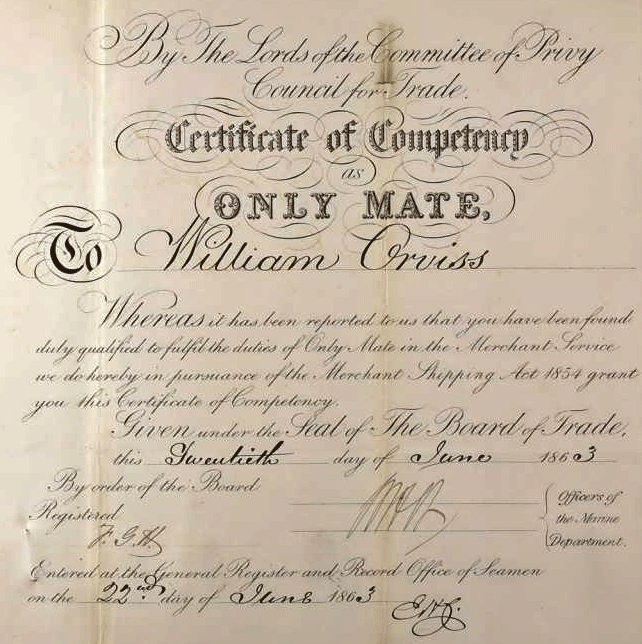 By The Lords of the Committee of Privy
Council for Trade.
Certificate of Competency
as
ONLY MATE,
To William Orviss
Whereas it has been reported to us that you have been found
duly qualified to fulfil the duties of Only Mate in the Merchant Service
we do hereby in pursuance of the Merchant Shipping Act 1854 grant
you this Certificate of Competency.
Given under the Seal of The Board of Trade,
this Twentieth day of June 1863
By order of the Board
Officers of
the Marine
Department.
Registered
F. G. H.
Entered at the General Register and Record Office of Seamen
on the 22nd day of June 1863